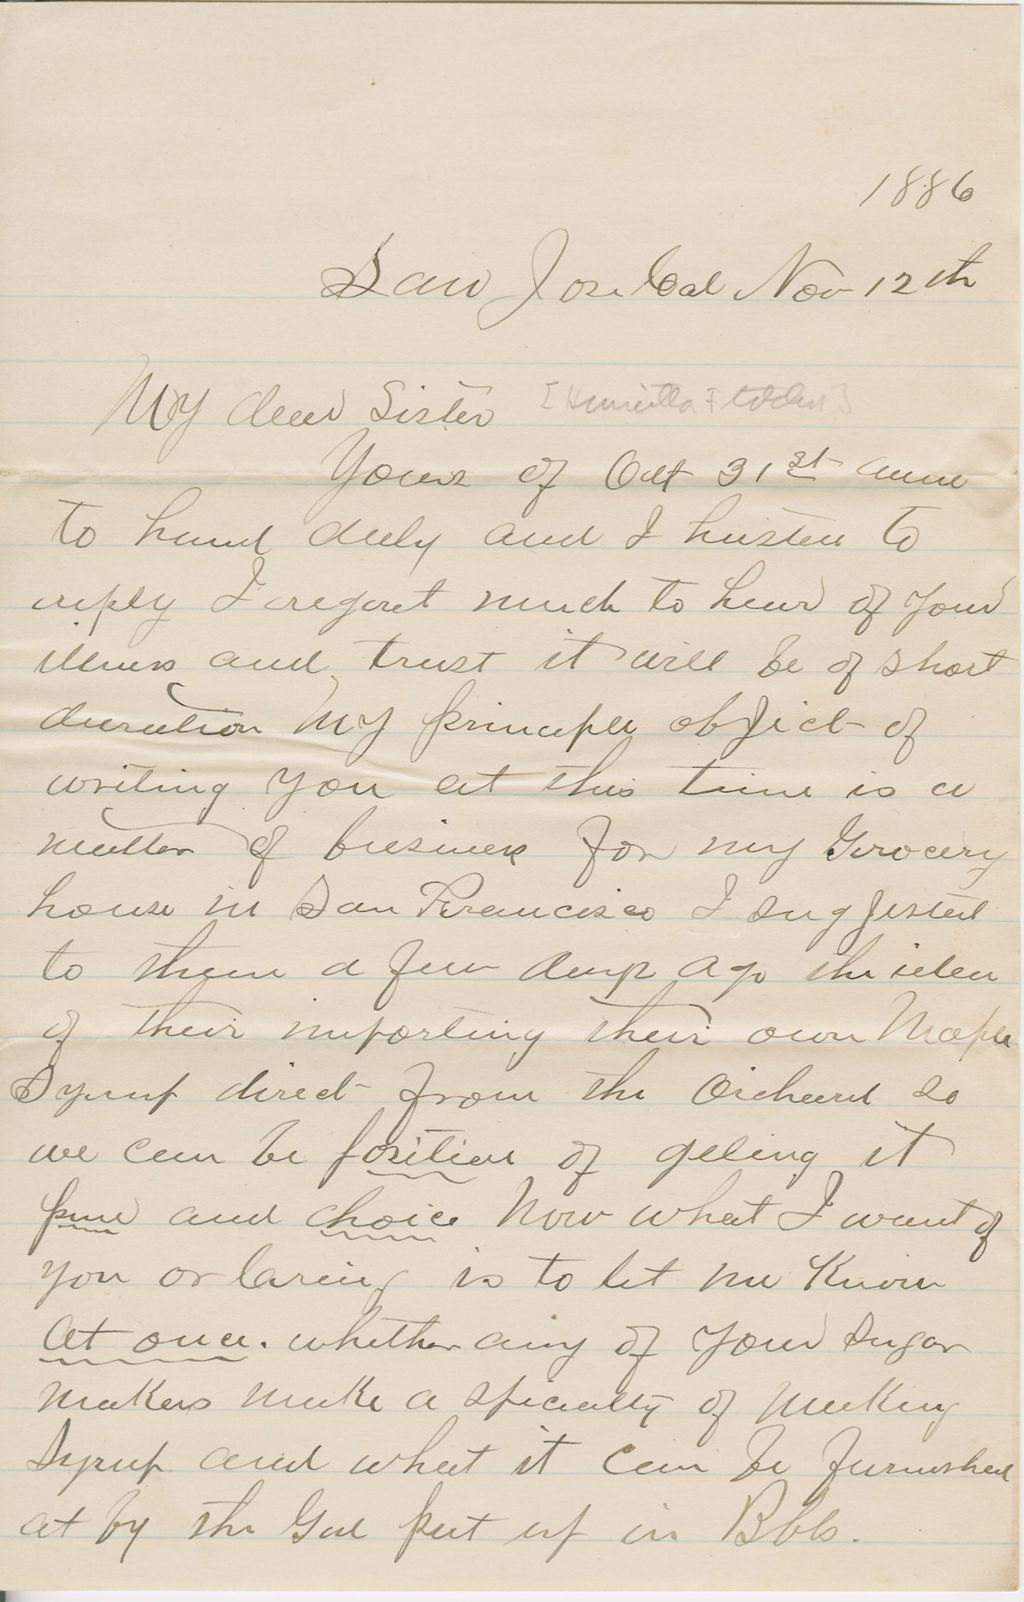 1886
San Jose Cal Nov 12th
My dear Sister [Henrietta F
Yours of Oct 31st came
to hand duly and I hasten to
reply I regret much to hear of your
illness and trust it will be of short
duration My principle object of
writing you at this time is a
matter of business for my Grocery
house in San Francisco I suggested
to them a few days ago the idea
of their importing their own Maple
Syrup direct from the Orchard so
we can be positive of geting it
pure and choice Now what I want of
you or is to let me Know
At once. whether any of your Sugar
makers make a specialty of making
Syrup and what it can be furnished
at by the Gal put up in Bbls.